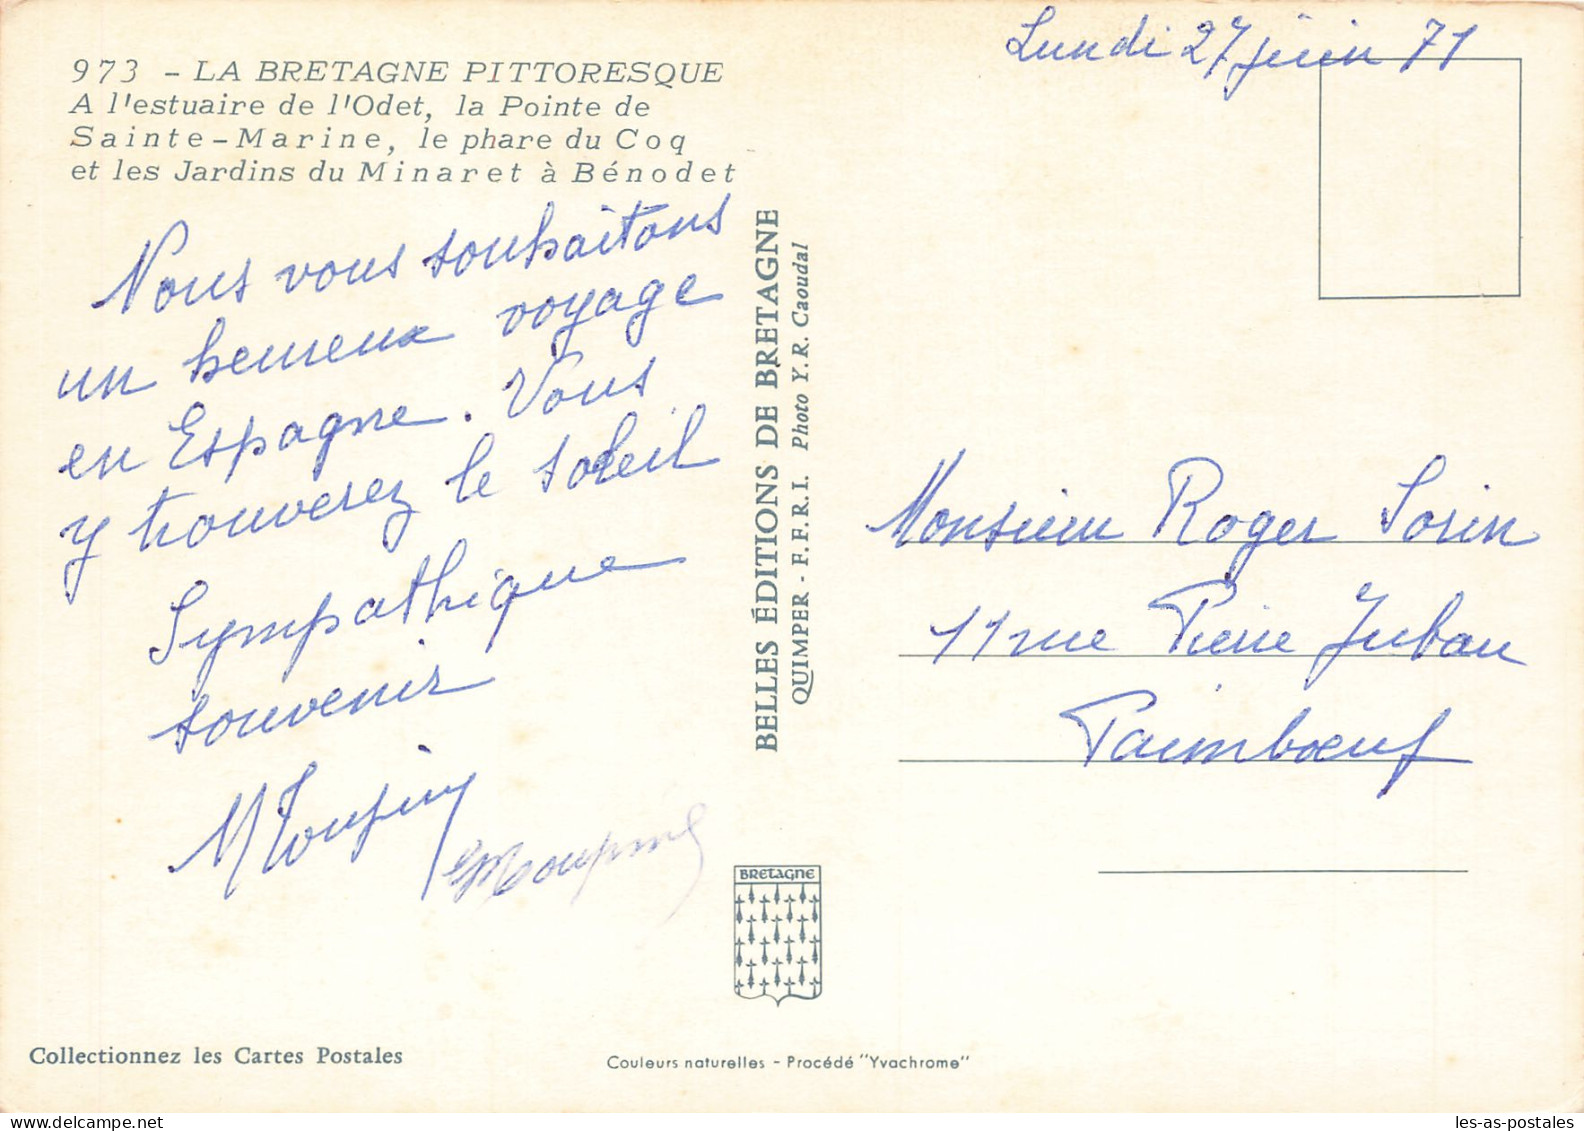 Lundi 27 juin 71
973 - LA BRETAGNE PITTORESQUE
A l'estuaire de l'Odet, la Pointe de
Sainte-Marine, le phare du Coq
et les Jardins du Minaret à Bénodet
Nous vous souhaitons
un heureux voyage
en Espagne. Vous
y trouverez le soleil
Sympathique
souvenir
BELLES ÉDITIONS DE BRETAGNE
QUIMPER - F.F.R.I. Photo Y.R. Caoudal
Monsieur Roger Sorin
11 rue Pierre Jubau
Paimbœuf
BRETAGNE
Collectionnez les Cartes Postales
Couleurs naturelles - Procédé "Yvachrome"
les-as-postales